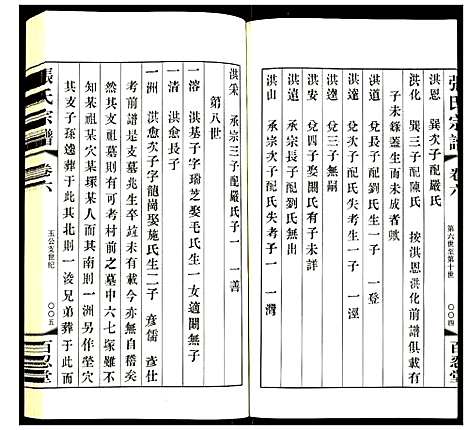 張氏宗譜
卷六
第六世至第十世
〇〇四
百忍堂
洪恩 巽次子配嚴氏
洪化 巽三子配陳氏 按洪恩洪化前譜俱載有
子未錄蓋生而未成者歟
洪道 兌長子配劉氏生一子 一登
洪遠 兌次子配氏失考生一子 一涇
洪逵 兌三子無嗣
洪安 兌四子娶關氏有子未詳
洪宗 承宗長子配氏失考
洪山 承宗次子配氏失考子一 一灣
洪采 承宗三子配嚴氏子一 一善
第八世
一溶 洪基子字瑞芝娶毛氏生一女適關無子
一清 洪愈長子
一洲 洪愈次子字龍崗娶施氏生二子 彥儒 彥仕
考前譜是支墓兆生卒年月一無所有似無自稽矣
然其支祖墓則有可考村前之墓中六七塚雖不
知某祖某穴某塚某人而其南則一洲另作塋穴
其支子孫遶葬于此其北則一淩兄弟葬于此而
張氏宗譜
卷六
玉公支世紀
〇〇五
百忍堂